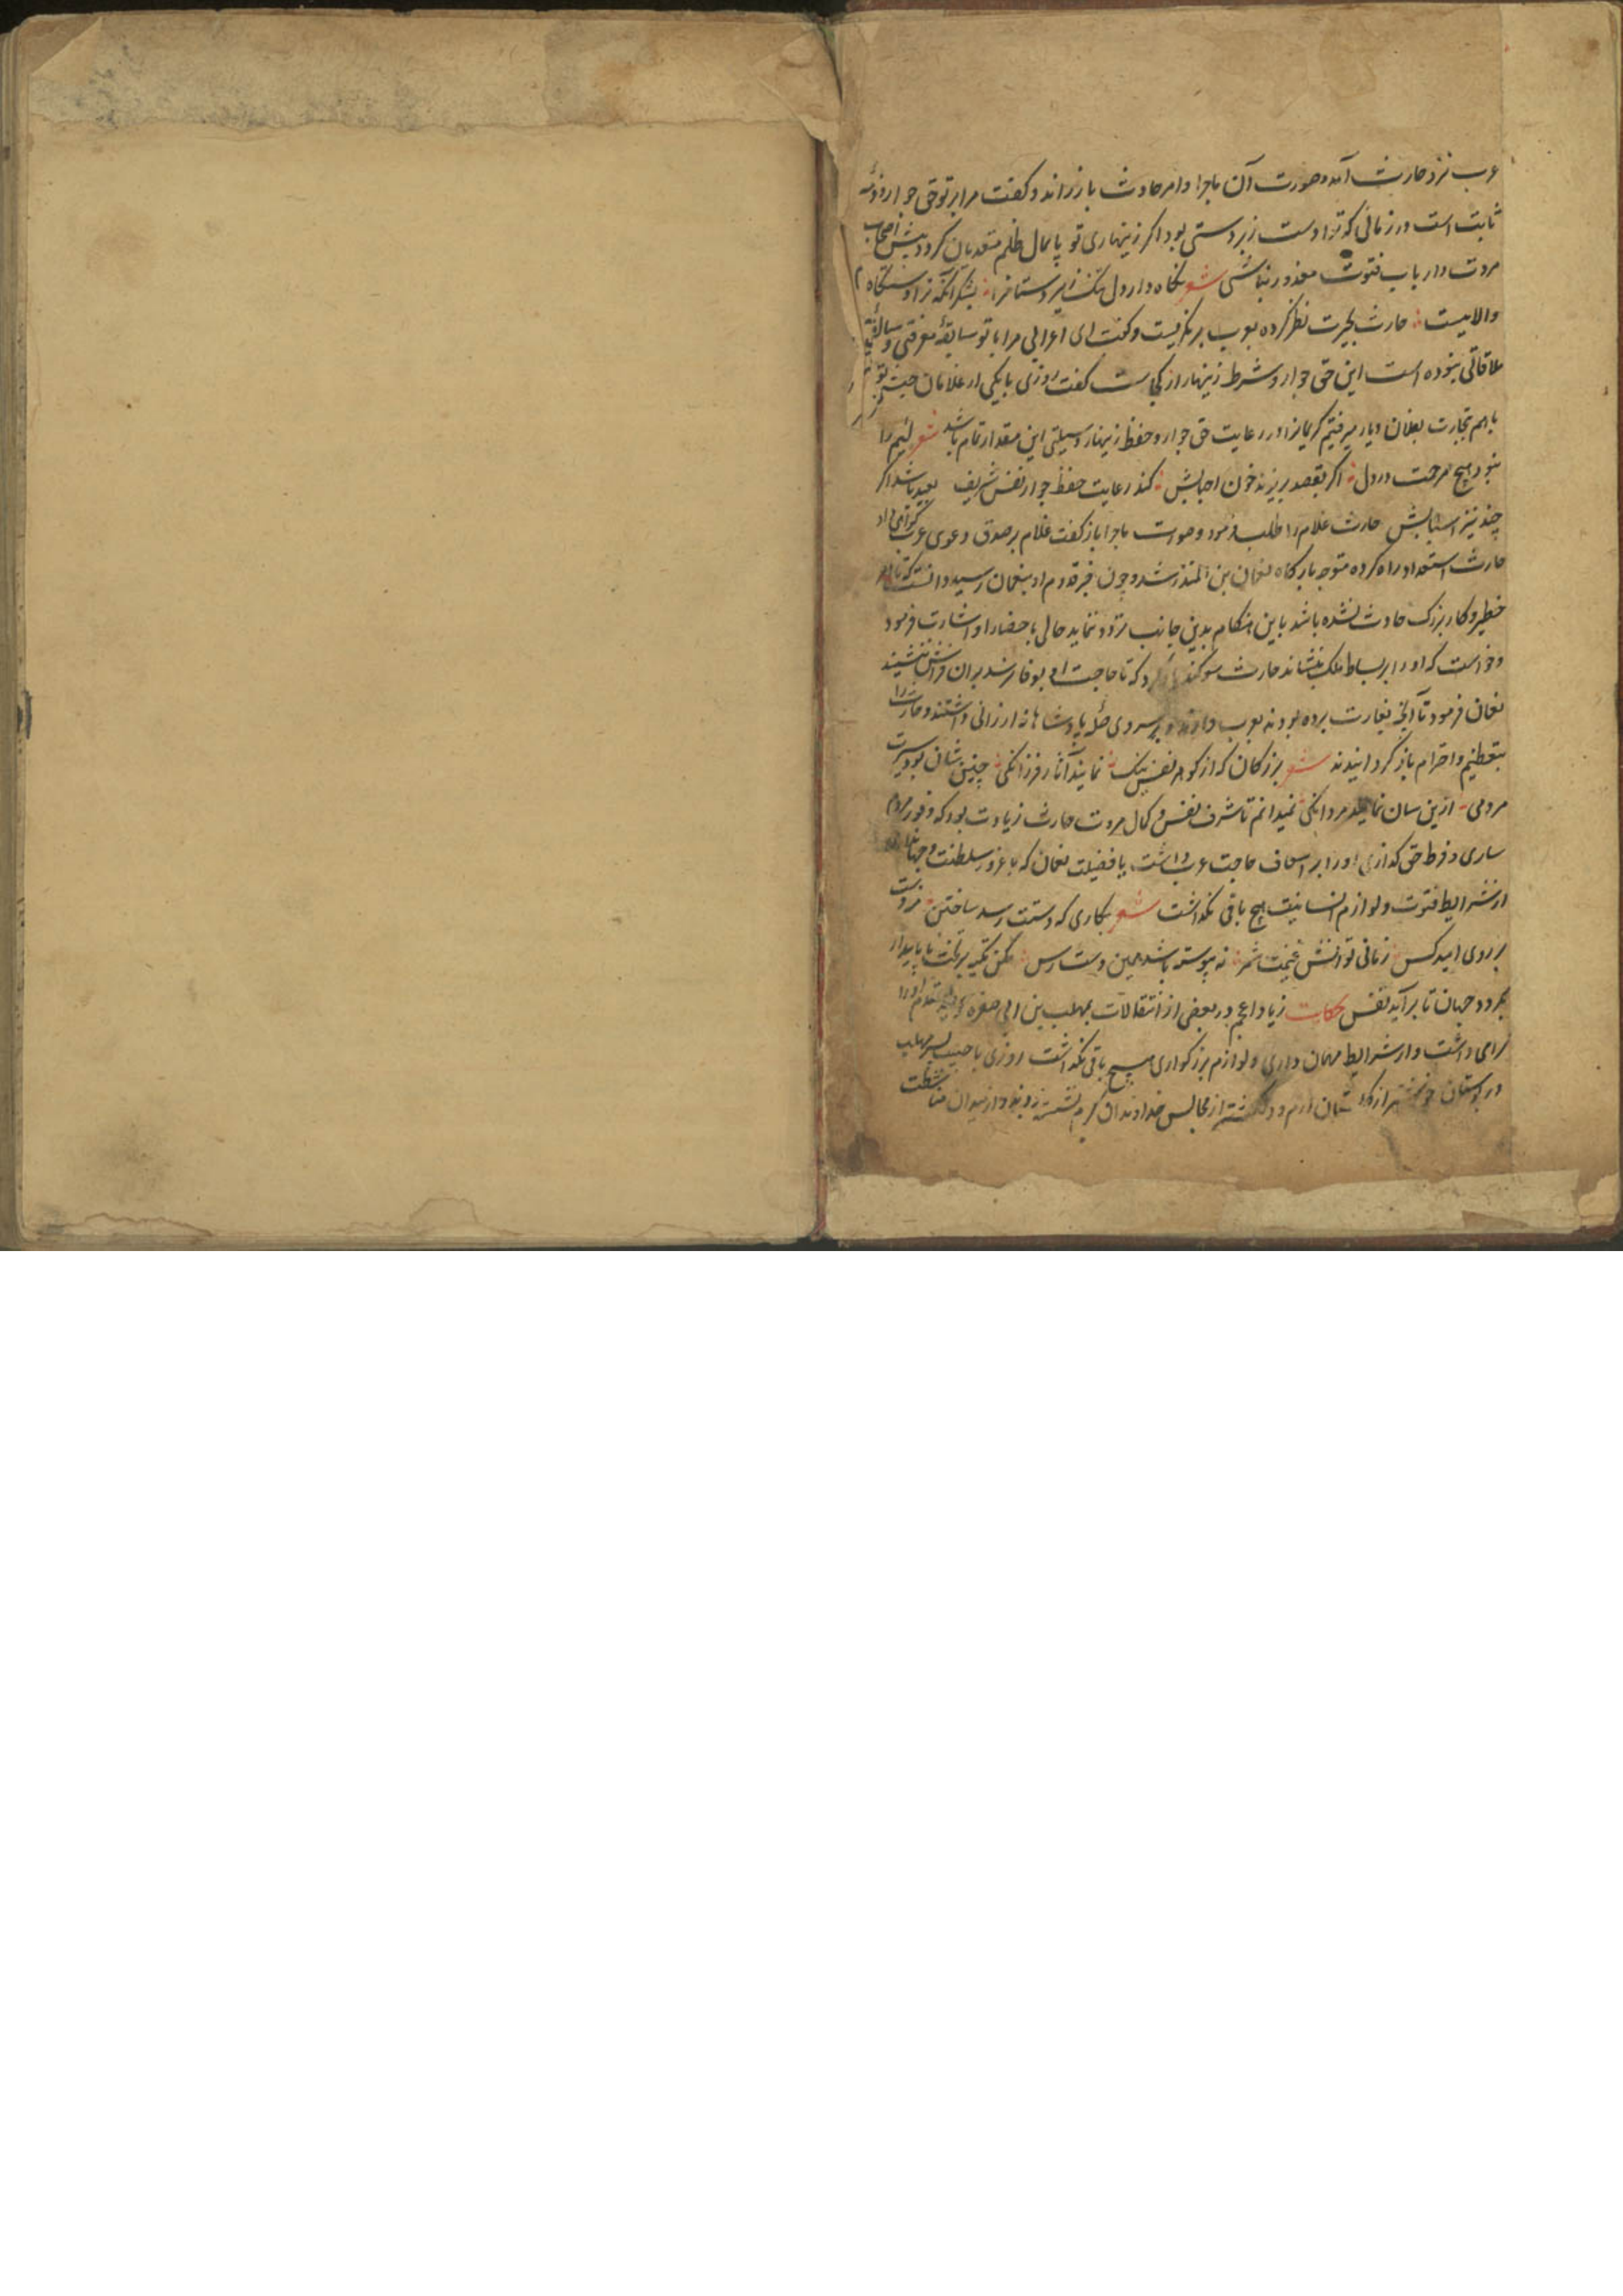 عرب نزد حارث آمد و صورت آن ماجرا و امر حادث باز راند و گفت مرا بر تو حق جوار و ذمه
ثابت است در زمانی که ترا دست زبردستی بود اگر زینهاری تو پایمال ظلم متعدیان گردد پیش اصحاب
مروت و ارباب فتوت معذور نباشی شعر نگاه دار دل زیردستانرا بشکر آنکه ترا دستگاه
والاییست حارث بحیرت نظر کرده بعرب بر نگریست و گفت ای اعرابی مرا با تو سابقه معرفتی و
ملاقاتی نبوده است این حق جوار و شرط زینهار از کجاست گفت روزی با یکی از غلامان
باهم تجارت بفلان دیار میرفتیم کریمانرا در رعایت حق جوار و حفظ زینهار وسیلتی این مقدار تمام باشد شعر لئیم را
نبود هیچ مرحمت در دل اگر بقصد بریزند خون احبابش کند رعایت حفظ جوار نفس شریف بعید باشد اگر
چند نیز اسبابش حارث غلام را طلب فرمود و صورت ماجرا باز گفت غلام بر صدق دعوی عرب گواهی داد
حارث استعداد راه کرده متوجه بارگاه نعمان بن المنذر شد و چون خبر قدوم او بنعمان رسید دانست که تا امر
خطیر و کار بزرگ حادث نشده باشد باین هنگام بدین جانب تردد ننماید حالی باحضار او اشارت فرمود
و خواست که او را بر بساط ملک بنشاند حارث سوگند یاد کرد که تا حاجت او بوفا نرسد بران فراش ننشیند
نعمان فرمود تا آنچه بغارت برده بودند بعرب دادند و بر سروی حله پادشاهانه ارزانی داشتند و حارث را
بتعظیم و احترام باز گردانیدند شعر بزرگان که از گوهر نفس نیک نمایند آثار فرزانگی چنین شان بود سیرت
مردمی ازین سان نمایند مردانگی نمیدانم تا شرف نفس و کمال مروت حارث زیادت بود که وفور
ساری و فرط حق گذاری او را بر اسعاف حاجت عرب داشت یا فضیلت نعمان که با غرور سلطنت و
از شرایط فتوت و لوازم انسانیت هیچ باقی نگذاشت شعر بکاری که دستت رسد ساختن
بر روی امید کس زمانی توانش غنیمت شمر نه پیوسته باشد همین دست رس مکن تکیه بر بخت ناپایدار
بگردد جهان تا بر آید نفس حکایت زیاد اعجم در بعضی از انتقالات بمهلب بن ابی صفره
گرامی داشت و از شرایط مهمان داری و لوازم بزرگواری هیچ باقی نگذاشت روزی با حبیب پسر مهلب
در بوستان خوشتر از گلستان ارم و دلگشتر از مجالس خداوندان کرم نشسته بودند و از میدان